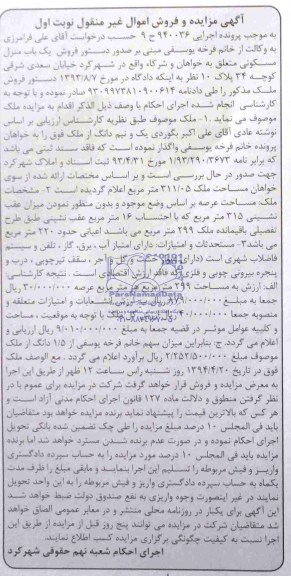 آگهی مزایده و فروش اموال غیر منقول نوبت اول
به موجب پرونده اجرایی ۹۴۰۰۳۶ ح ۹ حسب درخواست آقای علی فرامرزی
به وکالت از خانم فرخه یوسفی مبنی بر صدور دستور فروش یک باب منزل
مسکونی متعلق به خواهان و شرکاء واقع در شهرکرد خیابان سعدی شرقی
کوچه ۳۴ پلاک ۱۰ نظر به اینکه دادگاه در مورخ ۱۳۹۳/۸/۷ دستور فروش
ملک مذکور را طی دادنامه ۹۳۰۹۹۷۳۸۱۰۹۰۰۶۱۴ صادر نموده و با توجه به
کارشناسی انجام شده اجرای احکام با وصف ذیل الذکر اقدام به مزایده ملک
موصوف می نماید ۱- ملک موصوف طبق نظریه کارشناسی ارزیابی بر اساس
نوشته عادی آقای علی اکبر بگوردی یک و نیم دانگ از ملک فوق را به خواهان
پرونده خانم فرخه یوسفی واگذار نموده است که فاقد سند ثبتی می باشد
که برابر نامه ۱/۹۳/۲۹۰/۳۶۷۳ مورخ ۹۴/۴/۳۱ ثبت اسناد و املاک شهرکرد
جهت صدور در حال بررسی است و بر اساس مختصات ارائه شده از سوی
خواهان مساحت ملک ۳۱۱/۰۵ متر مربع اعلام گردیده است ۲- مشخصات
ملک: مساحت عرصه بر اساس وضع موجود و بدون منظور نمودن میزان عقب
نشینی ۳۱۵ متر مربع که با احتساب ۱۶ متر مربع عقب نشینی طبق طرح
تفصیلی باقیمانده ملک ۲۹۹ متر مربع می باشد اعیانی حدود ۲۲۰ متر مربع
می باشد ۳- مستحدثات و امتیازات: دارای امتیاز آب، برق، گاز، تلفن و سیستم
فاضلاب شهری است و آجر، سقف تیرچوبی، درب و
پنجره بیرونی چوبی و فلزی که فاقد ارزش اقتصادی است. نتیجه کارشناسی
الف: ارزش به مساحت ۲۹۹ متر مربع هر متر مربع عرصه ۳۰/۰۰۰/۰۰۰ ریال
جمعا به مبلغ انشعابات و امتیازات متعلقه و
منصوبه جمعا با توجه به موقعیت، مساحت
و کلیه عوامل موثر در قضیه جمعا به مبلغ ۹/۰۱۰/۰۰۰/۰۰۰ ریال ارزیابی و
اعلام می گردد. ج: بنابراین میزان سهم خانم فرخه یوسفی از ۱/۵ دانگ از ملک
موصوف مبلغ ۲/۲۵۲/۵۰۰/۰۰۰ ریال برآورد اعلام می گردد. مع الوصف ملک
فوق در تاریخ ۱۳۹۴/۴/۲۰ روز شنبه راس ساعت ۱۲ ظهر از طریق این اجرا
به معرض مزایده و فروش قرار خواهد گرفت شرکت در مزایده برای عموم با در
نظر گرفتن منطوق و دلالت ماده ۱۲۷ قانون اجرای احکام مدنی آزاد است و
هر کس که بالاترین قیمت را پیشنهاد نماید برنده مزایده خواهد بود متقاضیان
باید فی المجلس ۱۰ درصد مبلغ مزایده را طی چک تضمین شده بانکی تحویل
اجرای احکام نموده و در صورت عدم برنده شدن مسترد خواهد شد اما برنده
مزایده باید فی المجلس ۱۰ درصد مورد مزایده را به حساب سپرده دادگستری
واریز و فیش مربوطه را تسلیم این اجرا بنماید و مابقی مبلغ را ظرف مدت
یکماه به حساب سپرده دادگستری واریز و فیش مربوطه را به این واحد تحویل
نمایند در غیر اینصورت وجوه واریزی به نفع صندوق دولت ضبط خواهد شد
این آگهی برای یکبار در روزنامه محلی منتشر و در معابر عمومی الصاق خواهد
شد متقاضیان شرکت در مزایده می توانند پنج روز قبل از مزایده از طریق این
اجرا نسبت به کیفیت چگونگی برگزاری مزایده کسب اطلاع نمایند.
اجرای احکام شعبه نهم حقوقی شهرکرد
ParsNamadData